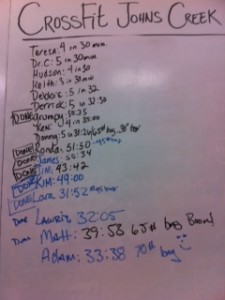 CROSSFIT JOHNS CREEK
Teresa: 4 in 30 min.
Dr. C: 5 in 30 min
Hudson: 4 in 30
Keith: 5 in 30 min
Debbie: 5 in 32
Derrick: 5 in 32:30
DONE Grumpy:
Ken: 4 in
Danny: 5 in
DONE Ronda: 51:50
DONE James:
DONE Tim: 43:42
DONE Kim: 49:00
DONE Lara: 31:52
DONE Laurie 32:05
DONE Matt: 39:53 65# bag Boom!
Adam: 33:38 70# bag